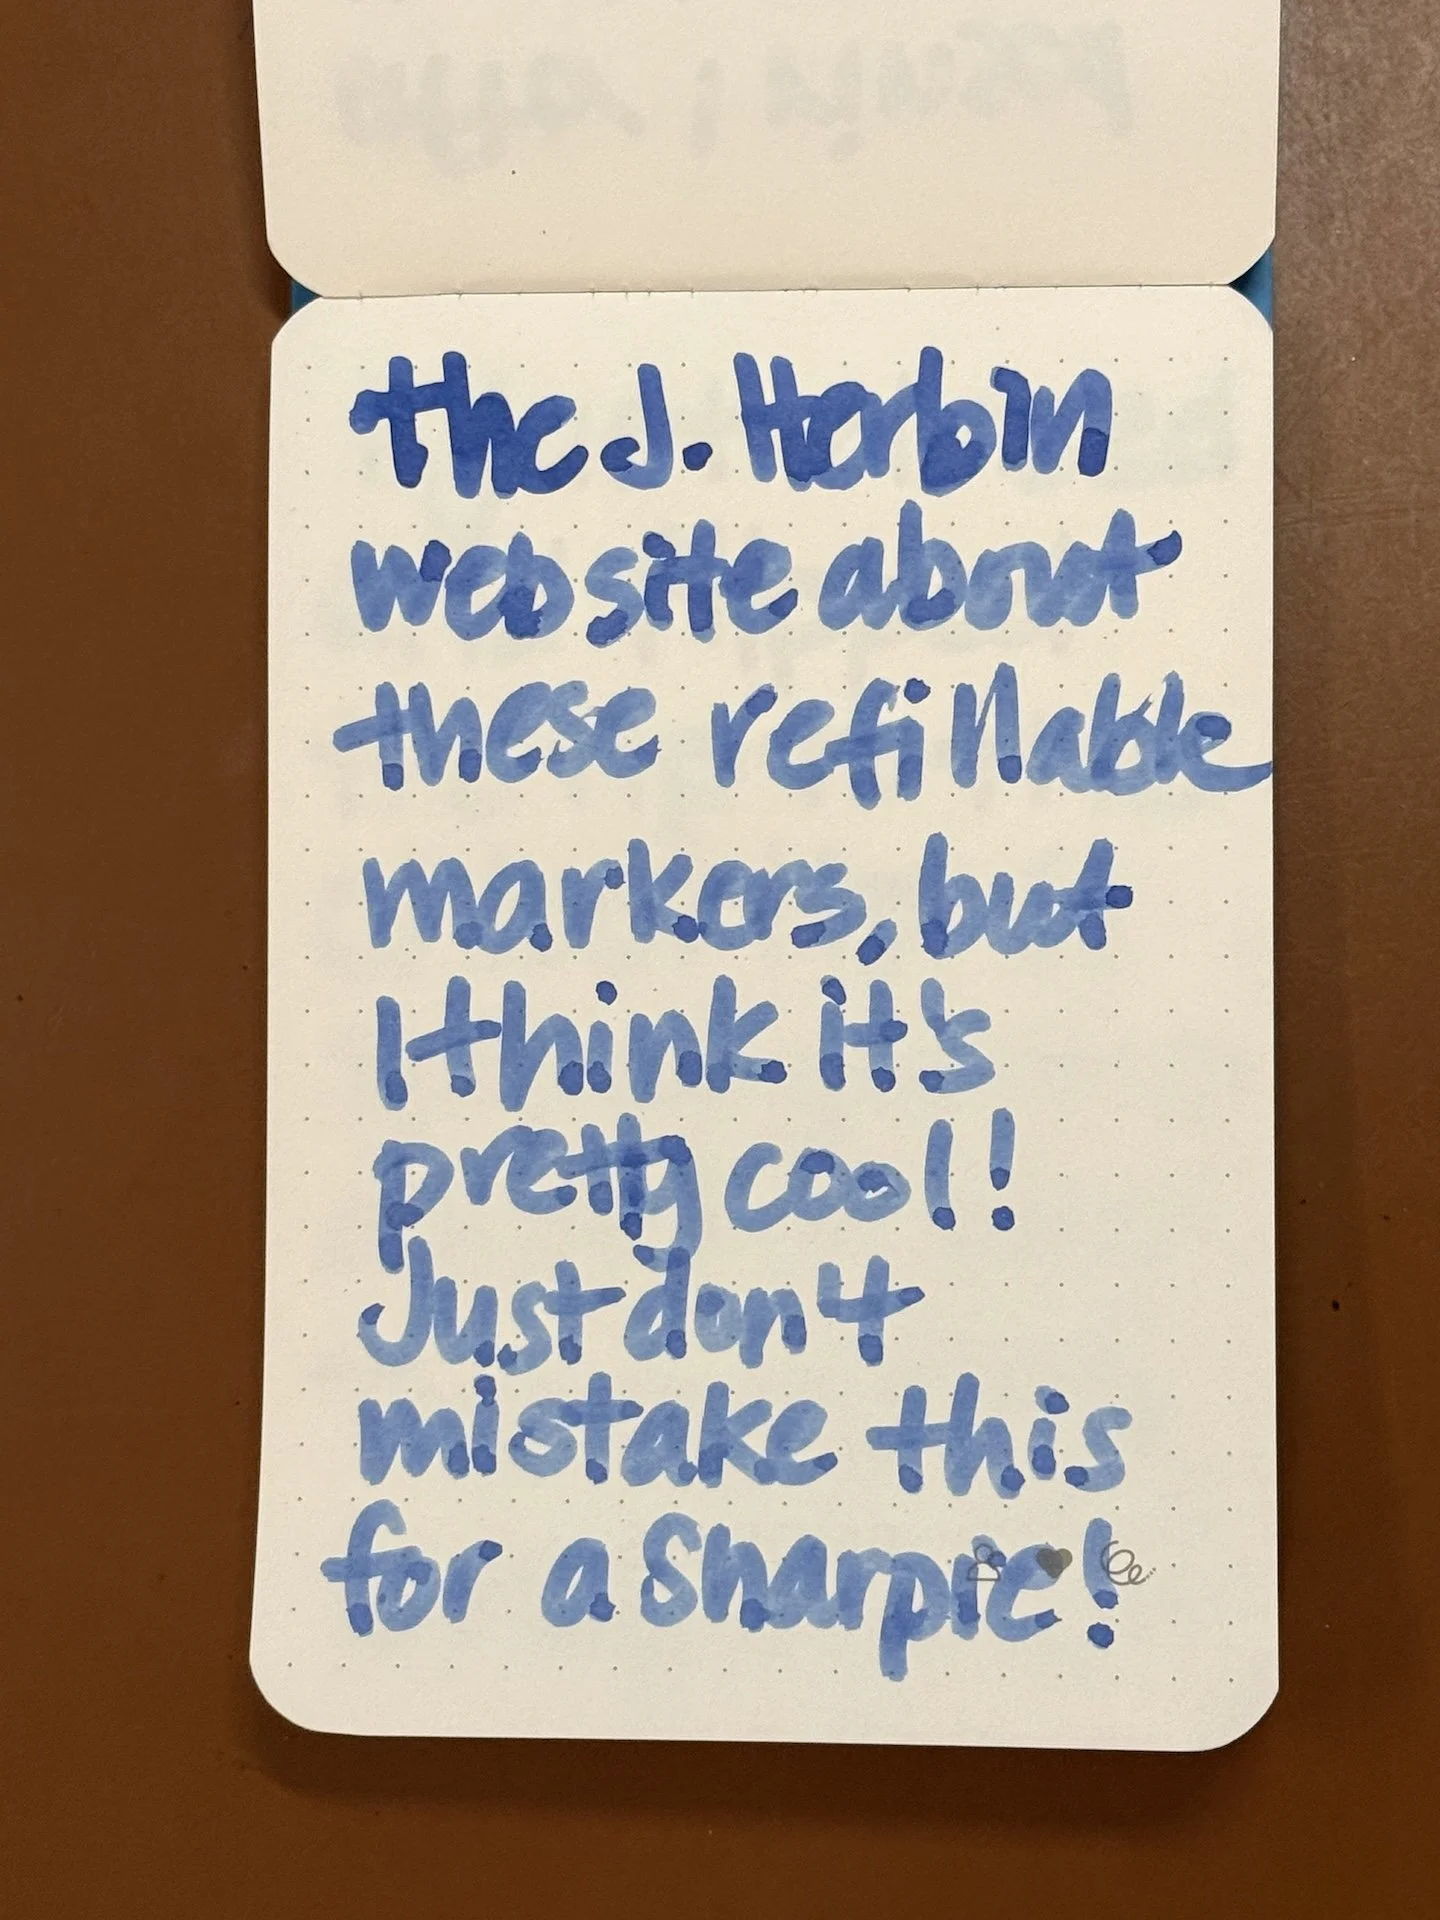 the J. Herbin
website about
these refillable
markers, but
I think it's
pretty cool!
Just don't
mistake this
for a Sharpie!